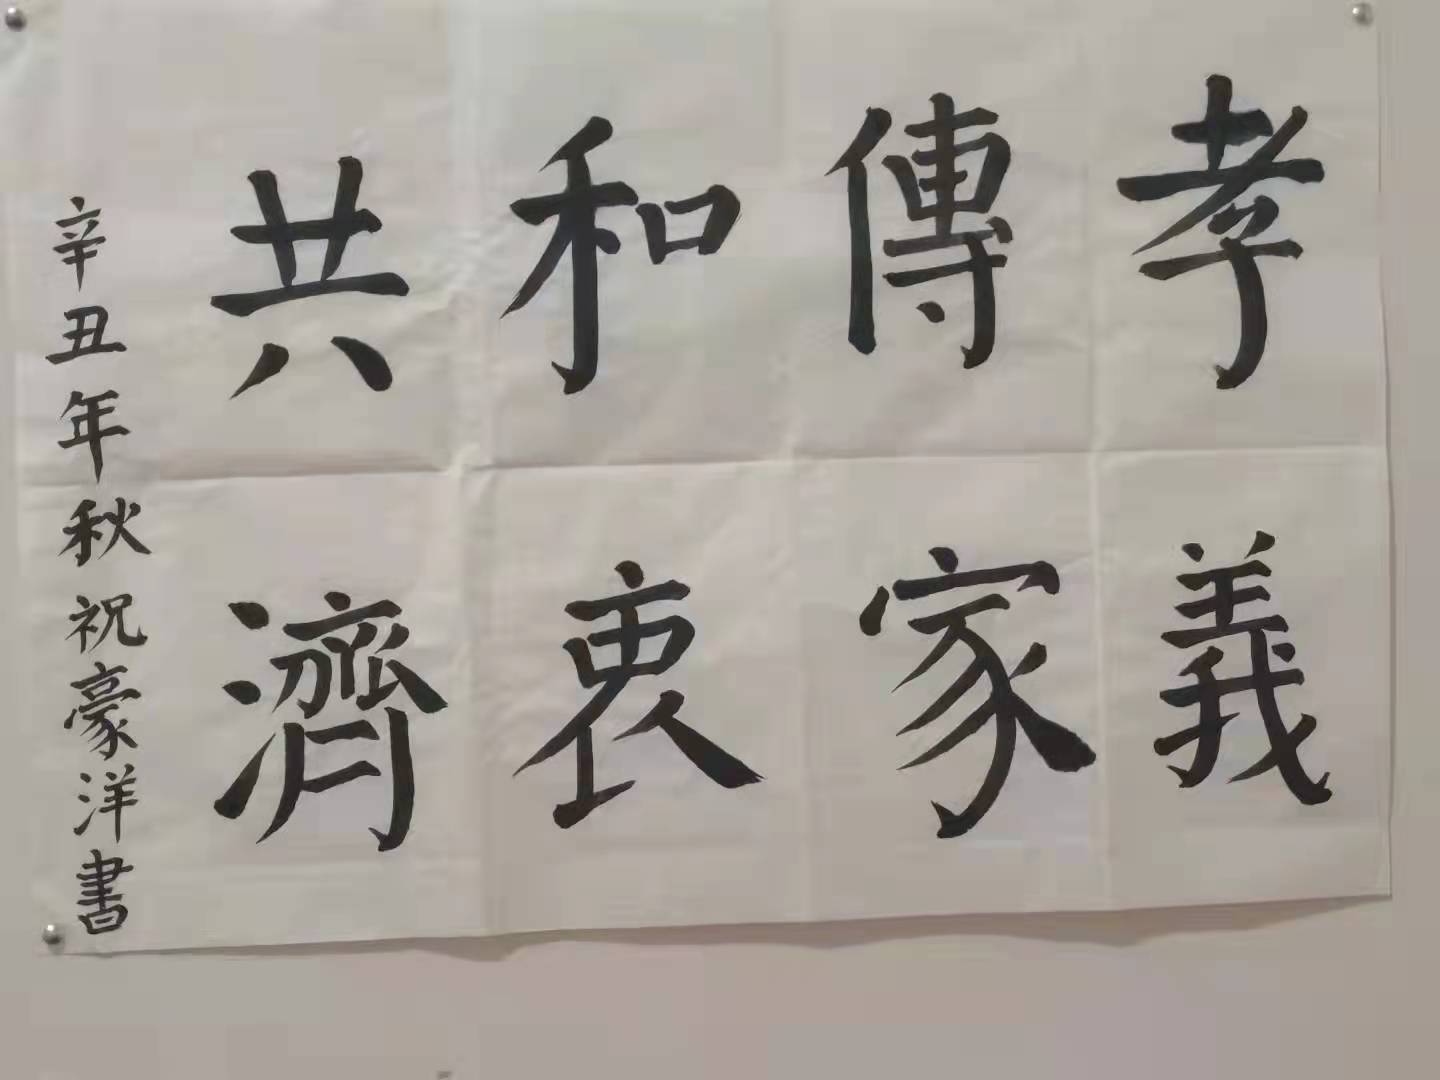 孝義
傳家
和衷
共濟
辛丑年秋祝豪洋書